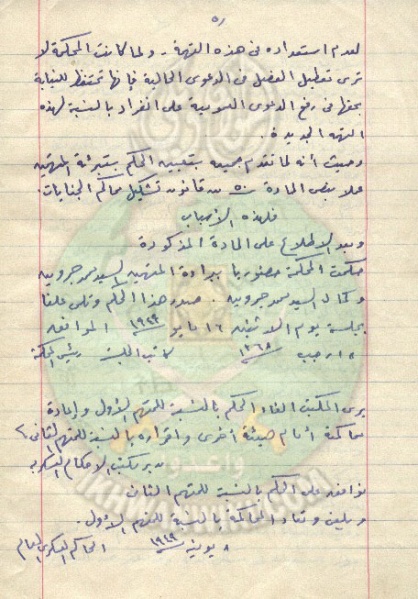 ٥١
لعدم استعداده فى هذه التهمة. ولما كانت المحكمة لا
ترى تعطيل الفصل فى الدعوى الحالية فإنها تحتفظ للنيابة
بحقها فى رفع الدعوى العمومية على انفراد بالنسبة لهذه
التهمة الجديدة.
وحيث أنه لما تقدم جميعه يتعين الحكم بتبرئة المتهمين
عملا بنص المادة ٥٠ من قانون تشكيل محاكم الجنايات.
فلهذه الأسباب
وبعد الاطلاع على المادة المذكورة
حكمت المحكمة حضوريا ببراءة المتهمين السيد
وكمال السيد. صدر هذا الحكم وتلى علنا
بجلسة يوم الاثنين ١٦ مايو ١٩٤٩ الموافق
رجب ١٣٦٨ كاتب الجلسة رئيس المحكمة
يرى المكتب الغاء الحكم بالنسبة للمتهم الأول وإعادة
محاكمته أمام هيئة أخرى واقراره بالنسبة للمتهم الثانى
مدير مكتب الأحكام العسكرية
نوافق على الحكم بالنسبة للمتهم الثانى
ويلغى وتعاد المحاكمة بالنسبة للمتهم الأول.
٨ يونيه ١٩٤٩ الحاكم العسكرى العام
واعدوا
IKHWANWIKI.COM